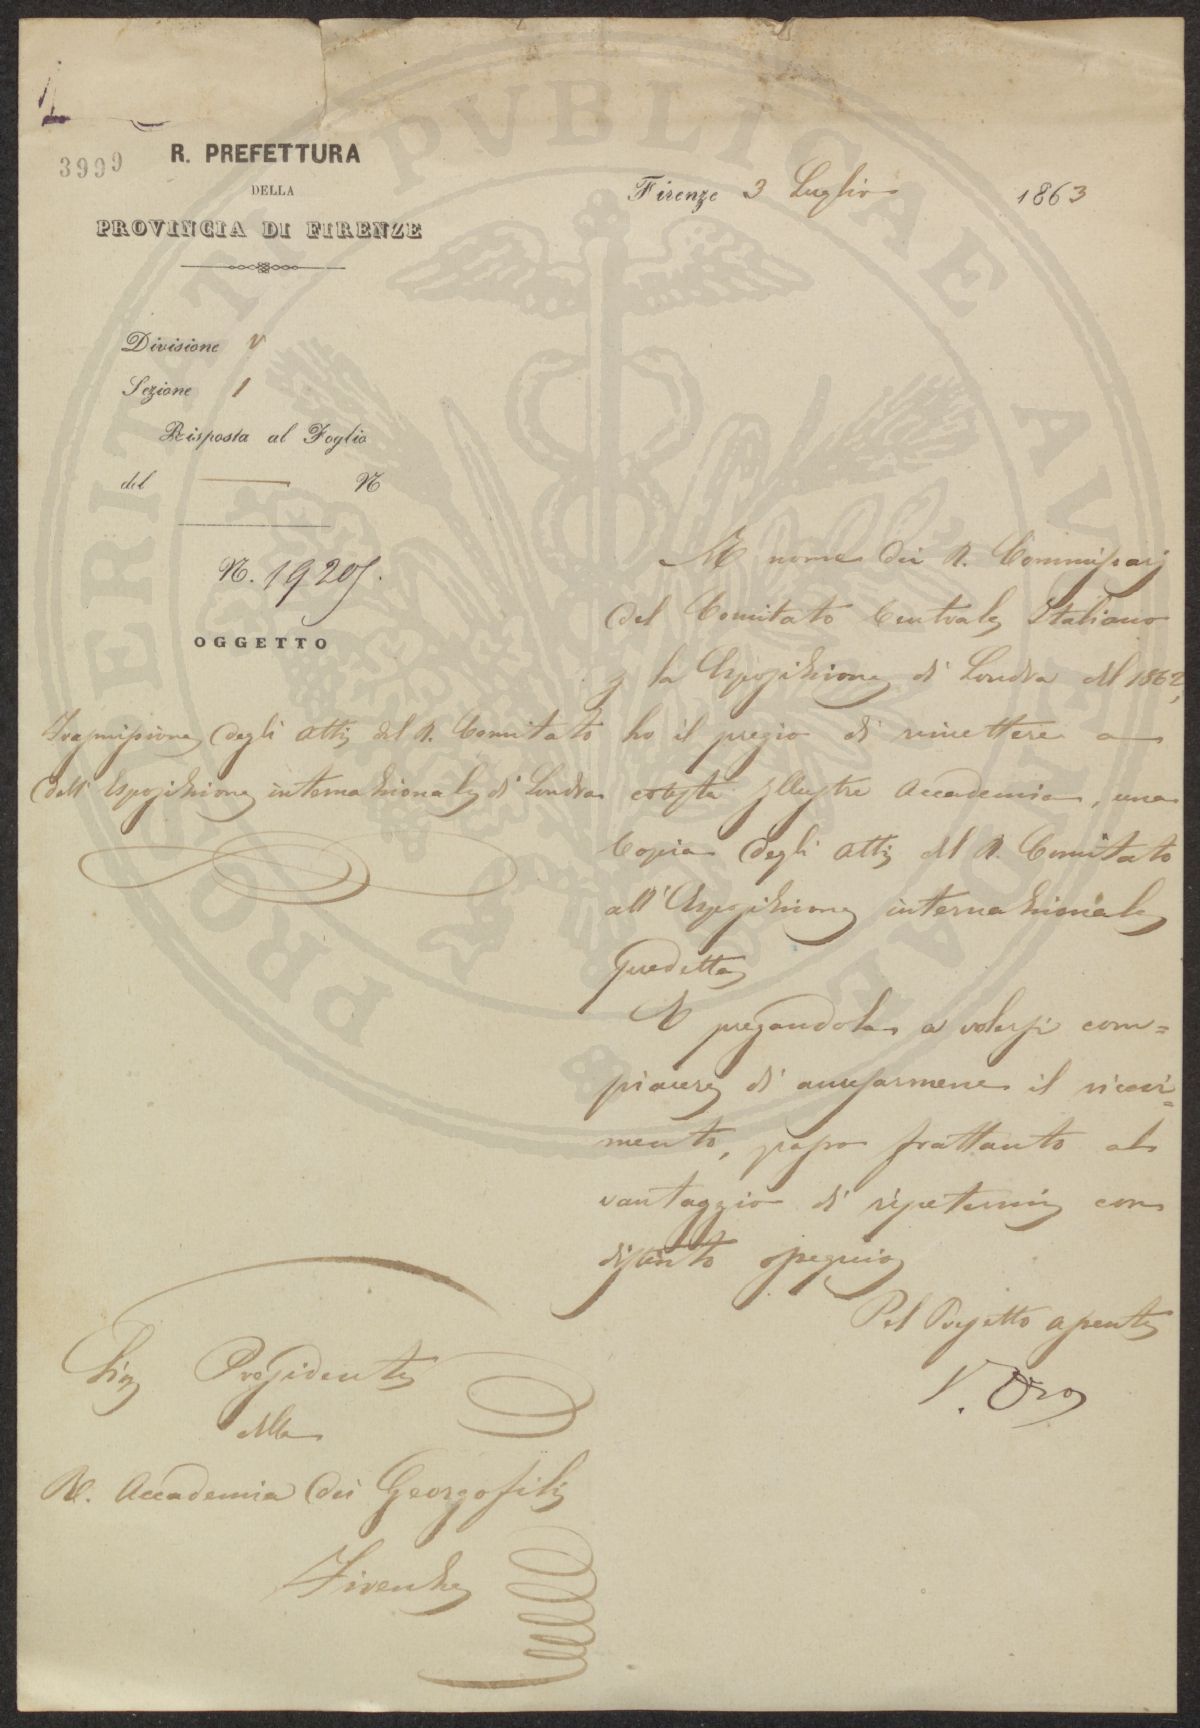 3999
R. PREFETTURA
DELLA
PROVINCIA DI FIRENZE
Firenze 3 Luglio 1863
Divisione V
Sezione 1
Risposta al Foglio
del N
N. 19205.
OGGETTO
Trasmissione degli Atti del R. Comitato
dell'Esposizione internazionale di Londra
A nome dei R. Commissarj
del Comitato Centrale Italiano
p la Esposizione di Londra del 1862,
ho il pregio di rimettere a
cotesta Illustre Accademia, una
Copia degli Atti del R. Comitato
all'Esposizione internazionale
predetta
E pregandola a volersi com=
piacere di accusarmene il ricevi=
mento, passo frattanto al
vantaggio di ripetermi con
distinto ossequio
Pel Prefetto assente
V. Oro
Sig Presidente
della
R. Accademia dei Georgofili
Firenze
PROSPERITATI PVBLICAE AVGENDAE